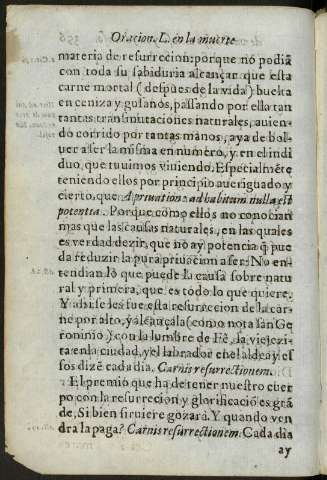 Oracion. L. en la muerte
materia de resurrecion: porque no podiã
con toda su sabiduria alcançar que esta
carne mortal (despues de la vida) buelta
en ceniza y gusanos, passando por ella tan
tantas transmutaciones naturales, auien
do corrido por tantas manos, aya de bol-
uer a ser la misma en numero, y en el indi
duo, que tuuimos viuiendo. Especialmẽte
teniendo ellos por principio aueriguado y
cierto, que A priuatione ad habitum nulla est
potentia. Porque como ellos no conocian
mas que las causas naturales, en las quales
es verdad dezir, que no ay potencia q̃ pue
da reduzir la pura priuacion a ser: No en-
tendian lo que puede la causa sobre natu
ral y primera, que es todo lo que quiere.
Y ahi se les fue esta resurrecion de la car-
ne por alto, y alcançala (como nota san Ge
ronimo) con la lumbre de Fè, la viejezi-
ta en la ciudad, y el labrador ẽ el aldea y es
sos dizẽ cada dia. Carnis resurrectionem.
El premio que ha de tener nuestro cuer
po con la resurrecion y glorificaciõ es grã
de, Si bien siruiere gozarà. Y quando ven
dra la paga? Carnis resurrectionem. Cada dia
ay